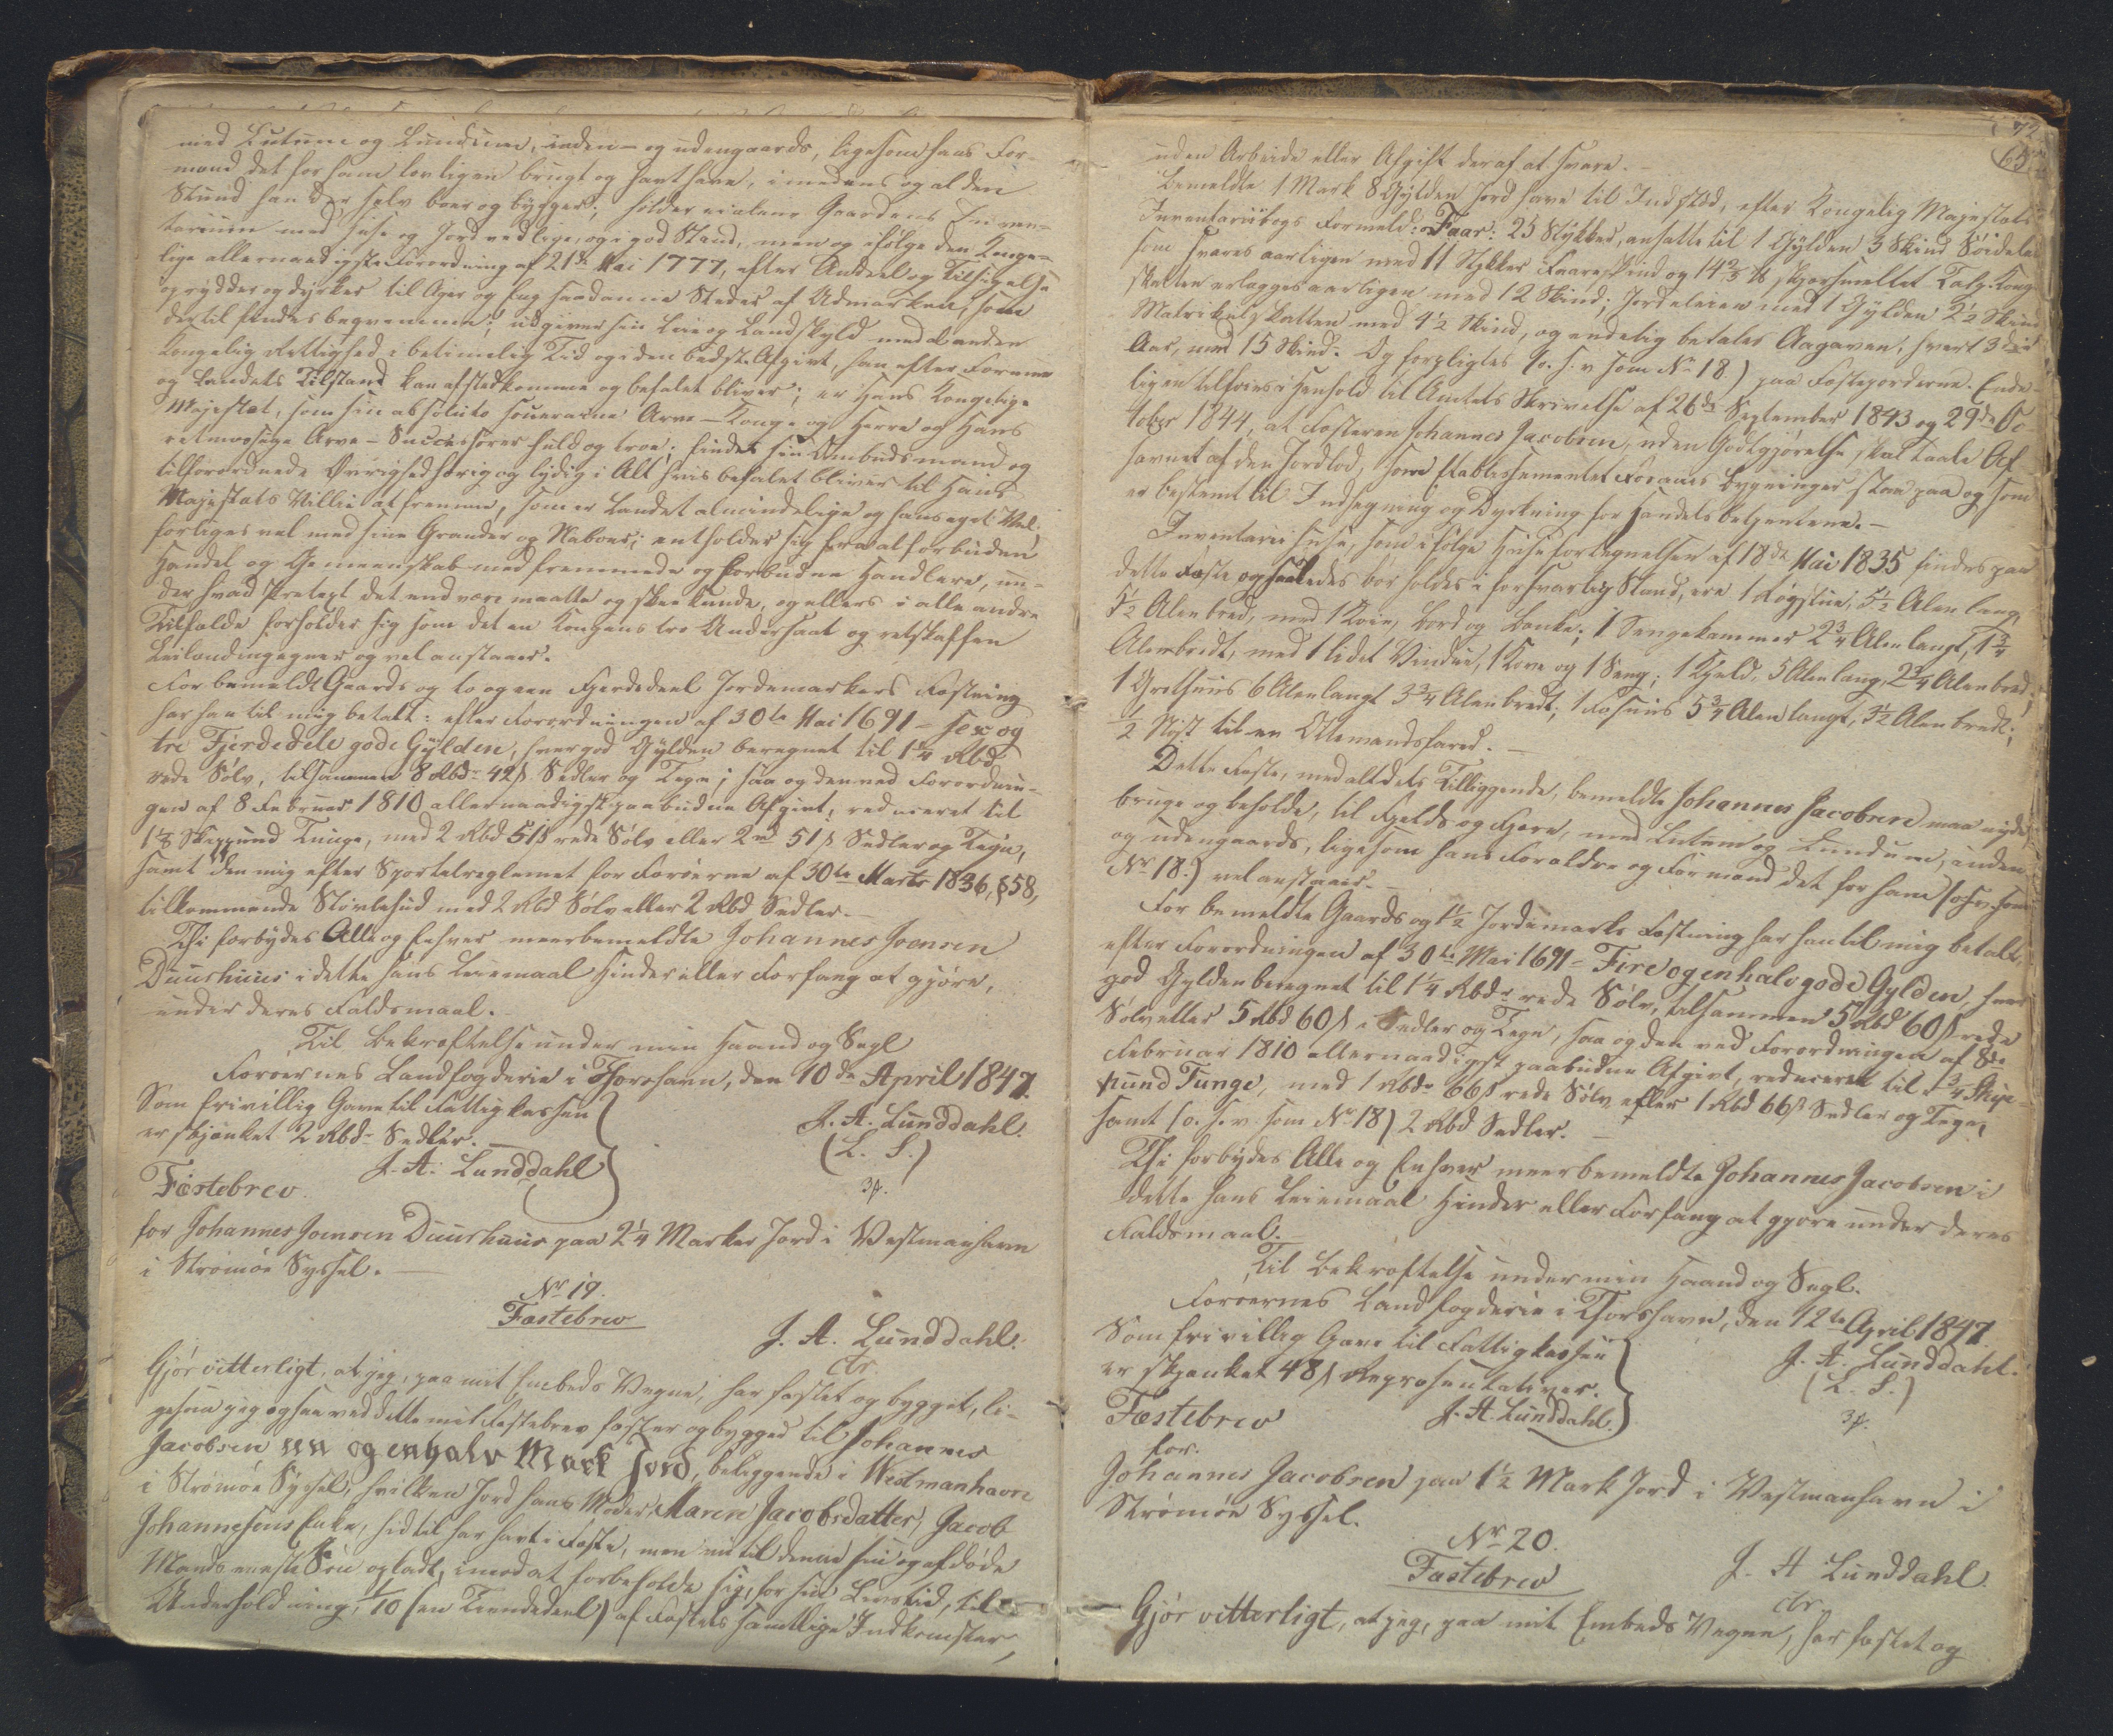 med Lutum og Lundum, inden- og udengaards, ligesom hans For-
mand det for ham lovligen brugt og havt have, imedens og al den
Stund han der selv boer og bygger; holder ermeldte Gaardens Inven-
tarium med Huse og Jord vedlige, og i god Stand, men og ifølge den Konge-
lige allernaadigste Forordning af 21de Mai 1777, efter Andeel og Tilsigelse
oprydder og dyrker til Ager og Eng saadanne Steder af Udmarken, som
dertil findes beqvemme; udgiver sin Leie og Landskyld med al anden
Kongelig Rettighed i betimelig Tid og i den bedste Afgivt, han efter Formue
og Landets Tilstand kan afstedkomme og befalet bliver; er Hans Kongelige
Majestæt, som sin absolute souveraine Arve-Konge og Herre og Hans
retmæssige Arve-Successorer huld og troe; findes sin Ombudsmand og
tilforordnede Øvrighed hørig og lydig i Alt hvis befalet bliver til Hans
Majestæts Villie at fremme, som er Landet almindelige og hans eget Vel;
forliges vel med sine Grander og Naboer; entholder sig fra al forbuden
Handel og Gemeenskab med fremmede og forbudne Handlere, un-
der hvad Prætext det end være maatte og skee kunde, og ellers i alle andre
Tilfælde forholder sig som det en Kongens tro Undersaat og retskaffen
Leilændinge egner og vel anstaaer.
For bemeldte Gaards og to og een Fjerdedeel Jordemarkers Fæstning
har han til mig betalt: efter Forordningen af 30te Mai 1691 = sex og
tre Fjerdedele gode Gylden, hver god Gylden beregnet til 1 1/4 Rbd
rede Sølv, tilsammen 8 Rbdr 42 ß Sedler og Tegn; saa og den ved Forordnin-
gen af 8 Februar 1810 allernaadigst paabudne Afgivt, reduceret til
1 1/8 Skippund Tunge, med 2 Rbd 51 ß rede Sølv eller 2 Rd 51 ß Sedler og Tegn,
samt den mig efter Sportelreglement for Færøerne af 30te Marts 1836, § 58,
tilkommende Støvlehud med 2 Rbd Sølv eller 2 Rbd Sedler.
Thi forbydes Alle og Enhver meerbemeldte Johannes Joensen
Duurhuus i dette hans Leiemaal Hinder eller Forfang at gjøre,
under deres Faldsmaal.
Til Bekræftelse under min Haand og Segl
Færøernes Landfogderie i Thorshavn, den 10de April 1847.
Som frivillig Gave til Fattigkassen
er skjænket 2 Rbdr Sedler.
J. A. Lunddahl
J. A. Lunddahl.
(L. S.)
Fæstebrev
for Johannes Joensen Duurhuus paa 2 1/4 Marker Jord i Vestmanhavn
i Strømøe Syssel.
No 19.
Fæstebrev
J. A. Lunddahl.
Gjør vitterligt, at jeg, paa mit Embeds Vegne, har fæstet og bygget, li-
gesom jeg ogsaa ved dette mit Fæstebrev fæster og bygger til Johannes
Jacobsen een og en halv Mark Jord, beliggende i Westmanhavn
i Strømøe Syssel, hvilken Jord hans Moder, Maren Jacobsdatter, Jacob
Johannesens Enke, hidtil har havt i Fæste, men nu til denne sin og afdøde
Mands eneste Søn opladt, imod at forbeholde sig, for sin Levetid, til
Underholdning, 1/10 (en Tiendedeel) af Fæstets samtlige Indkomster,
72
65
uden Arbeide eller Afgift deraf at svare.
Bemeldte 1 Mark 8 Gylden Jord have til Indfød, efter Kongelig Majestæts
Inventariibogs Formeld: Faar: 25 Stykker, ansatte til 1 Gylden 3 Skind
som svares aarligen med 11 Stykker Faareskind og 14 2/5 ℔ skjærsmeltet Talg. Kong-
skatten erlægges aarligen med 12 Skind; Jordeleien med 1 Gylden 2 1/2 Skind
Matrikelskatten med 4 1/2 Skind, og endelig betales Aagaven, hvert 3die
Aar, med 15 Skind. Og forpligtes (o. s. v. som No 18) paa Fæstegorderne. Ende-
ligen tilføies i Henhold til Amtets Skrivelse af 26de September 1843 og 29de Oc-
tober 1844, at Fæsteren Johannes Jacobsen, uden Godtgjørelse, skal taale Af-
savnet af den Jordlod, som Etablissementet Færøernes Bygninger staae paa og som
er bestemt til Indhegning og Dyrkning for Handelsbetjentene.
Inventarii Huse, som ifølge Huusfortegnelsen af 18de Mai 1835 findes paa
dette Fæste og saaledes bør holdes i forsvarlig Stand, ere 1 Røgstue, 5 1/2 Alen lang,
5 1/2 Alen bred, med 1 Kove, Bord og Bænke; 1 Sengekammer 2 3/4 Alen langt, 1 3/4
Alen bredt, med 1 lidet Vindue, 1 Kove og 1 Seng; 1 Hjeld, 5 Alen lang, 2 3/4 Alen bred;
1 Grothuus 6 Alen langt 3 3/4 Alen bredt; 1 Fæhuus 5 3/4 Alen langt, 3 1/2 Alen bredt;
1/2 Nøst til en Ottemandsfared.
Dette Fæste, med alt dets Tilliggende, bemeldte Johannes Jacobsen maa nyde,
bruge og beholde, til Fjelds og Fjære, med Lutum og Lundum, inden-
og udengaards, ligesom hans Forældre og Formænd det for ham (o. s. v. som
No 18.) vel anstaaer.
For bemeldte Gaards og 1 1/2 Jordemarks Fæstning har han til mig betalt,
efter Forordningen af 30te Mai 1691 - Fire og en halv gode Gylden, hver
god Gylden beregnet til 1 1/4 Rbdr rede Sølv, tilsammen 5 Rbd 60 ß rede
Sølv eller 5 Rbd 60 ß i Sedler og Tegn, saa og den ved Forordningen af 8de
Februar 1810 allernaadigst paabudne Afgivt, reduceret til 3/4 Skip-
pund Tunge, med 1 Rbdr 66 ß rede Sølv eller 1 Rbd 66 ß Sedler og Tegn,
samt (o. s. v. som No 18) 2 Rbd Sedler.
Thi forbydes Alle og Enhver meerbemeldte Johannes Jacobsen i
dette hans Leiemaal Hinder eller Forfang at gjøre under deres
Faldsmaal.
Til Bekræftelse under min Haand og Segl.
Færøernes Landfogderie i Thorshavn, den 12te April 1847.
Som frivillig Gave til Fattigkassen
er skjænket 48 ß Repræsentativer.
J. A. Lunddahl.
J. A. Lunddahl.
(L. S.)
Fæstebrev
for
Johannes Jacobsen paa 1 1/2 Mark Jord i Vestmanhavn i
Strømøe Syssel.
No 20.
Fæstebrev
J. A. Lunddahl.
Gjør vitterligt, at jeg, paa mit Embeds Vegne, har fæstet og